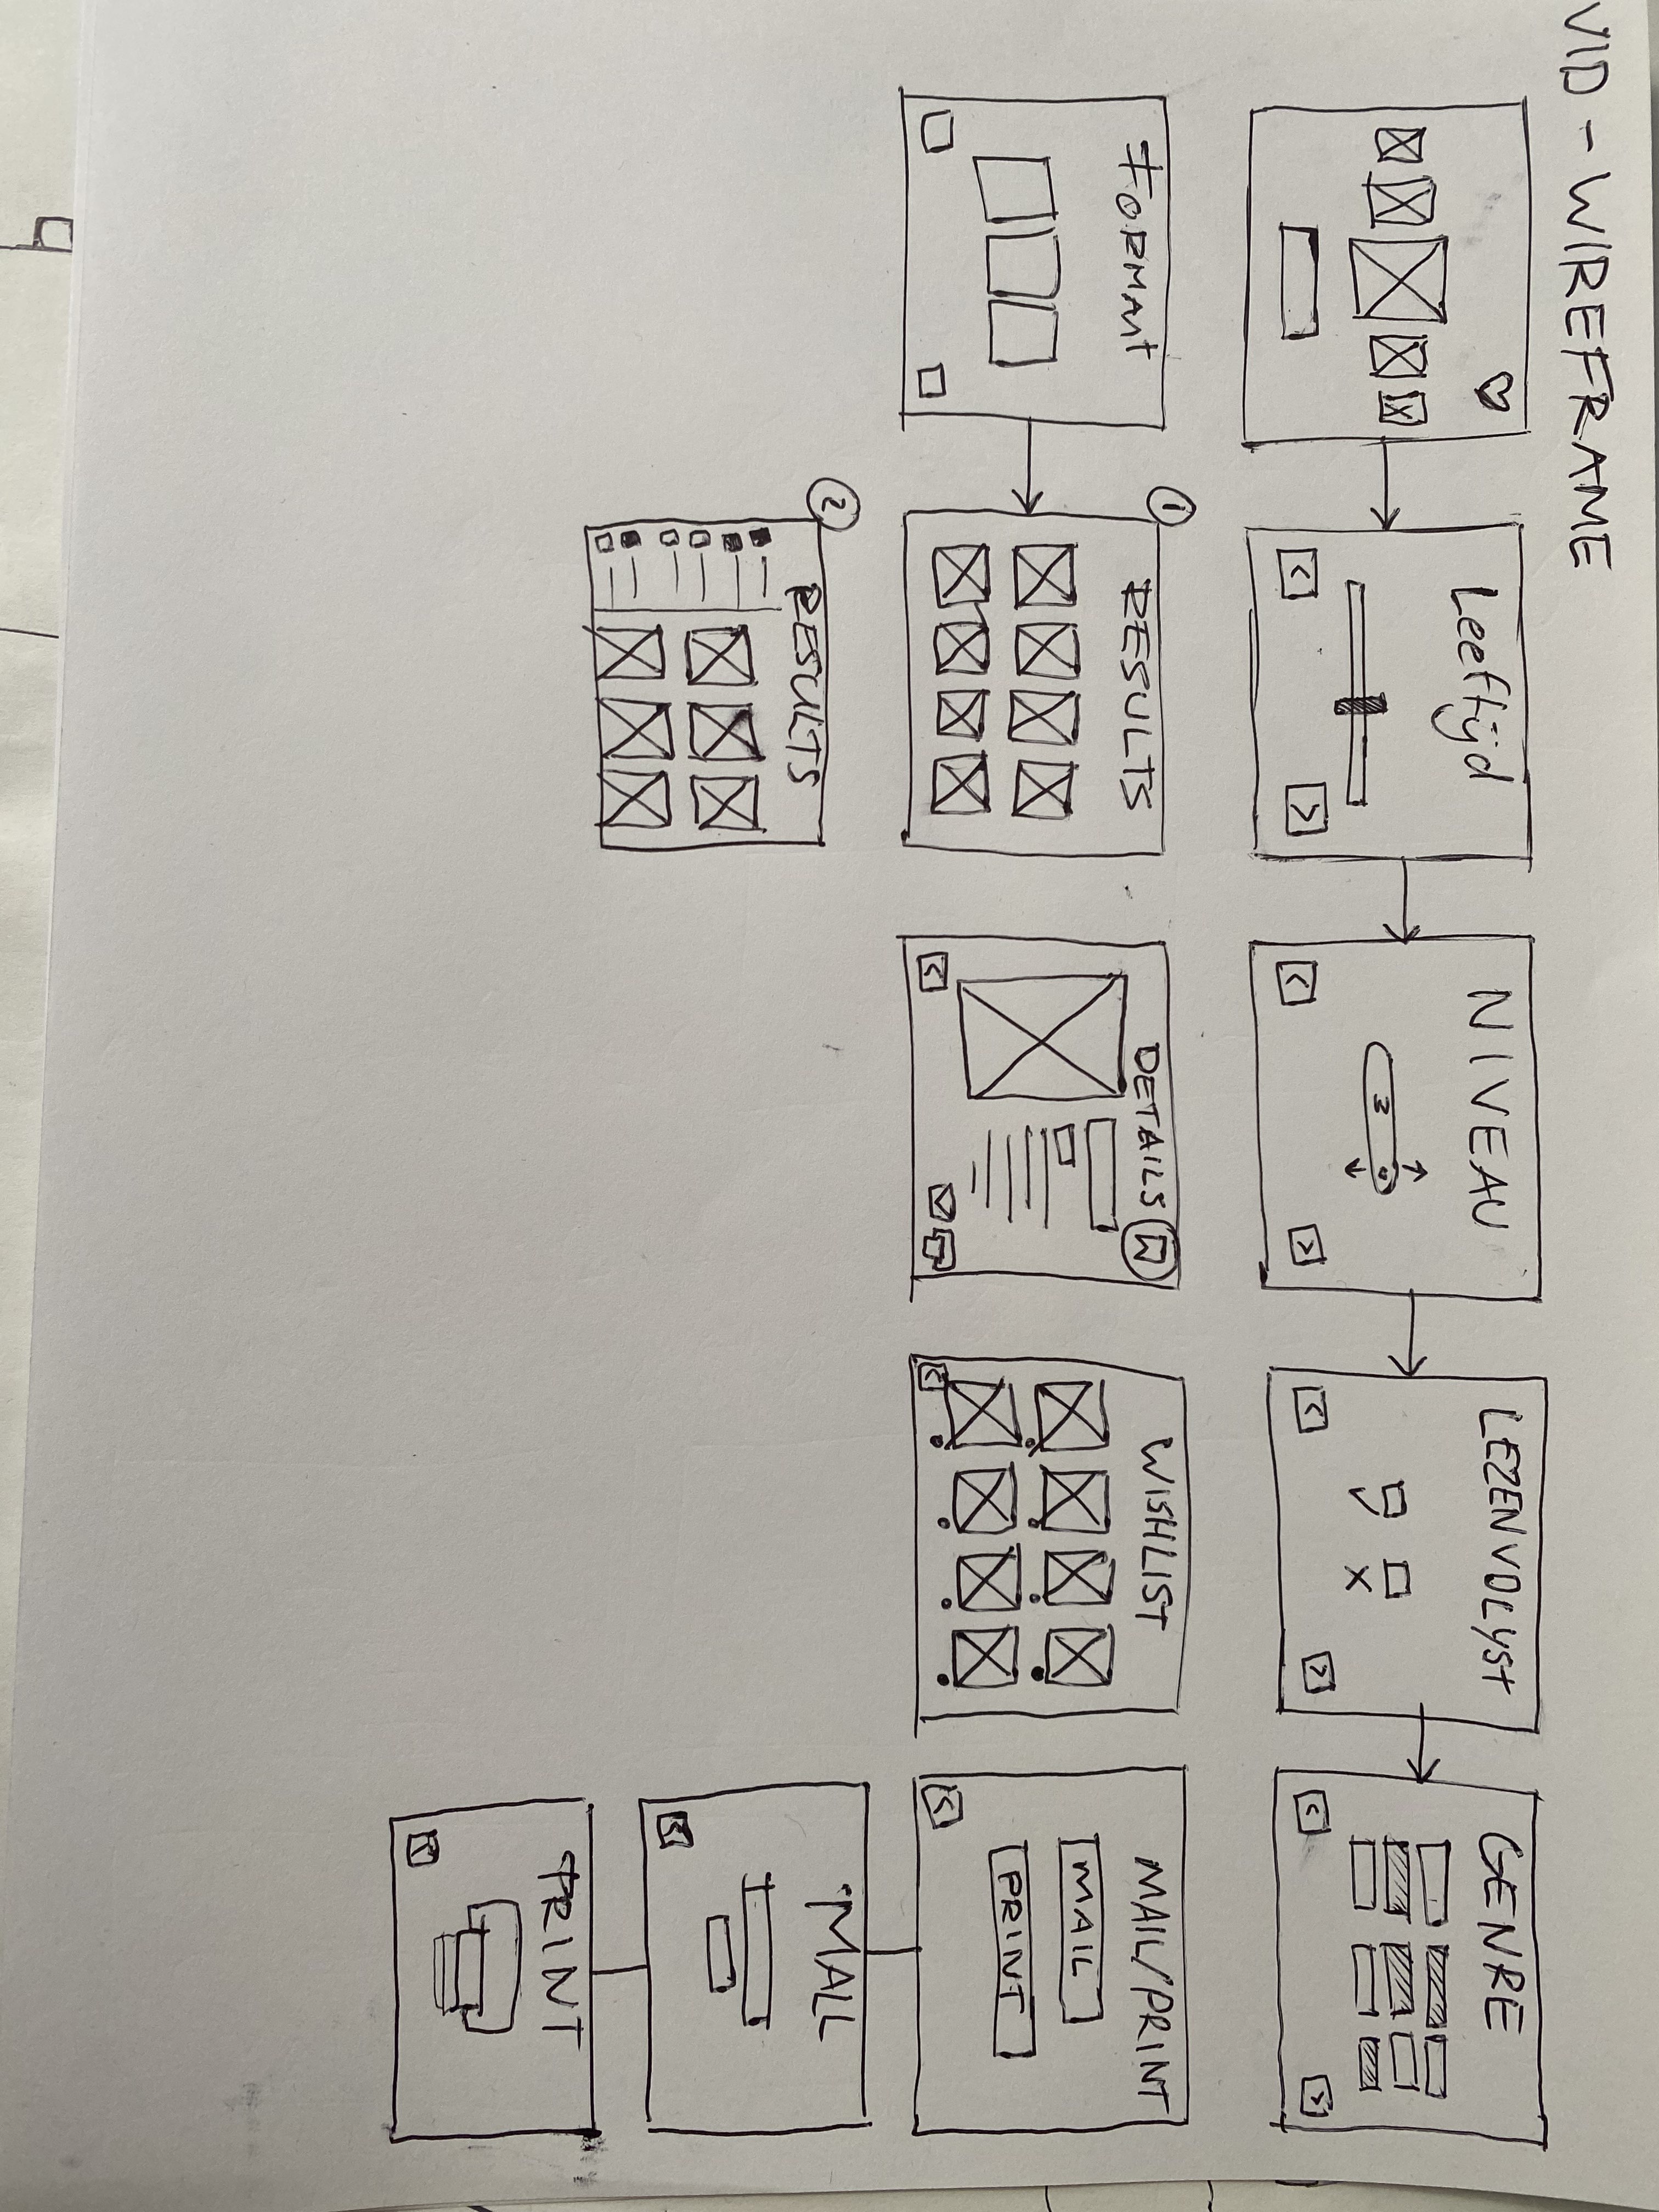 VID - WIREFRAME
Leeftijd
NIVEAU
3
LEZENVDLYST
GENRE
FORMAAT
1
RESULTS
DETAILS
WISHLIST
MAIL/PRINT
MAIL
PRINT
2
RESULTS
MAIL
PRINT